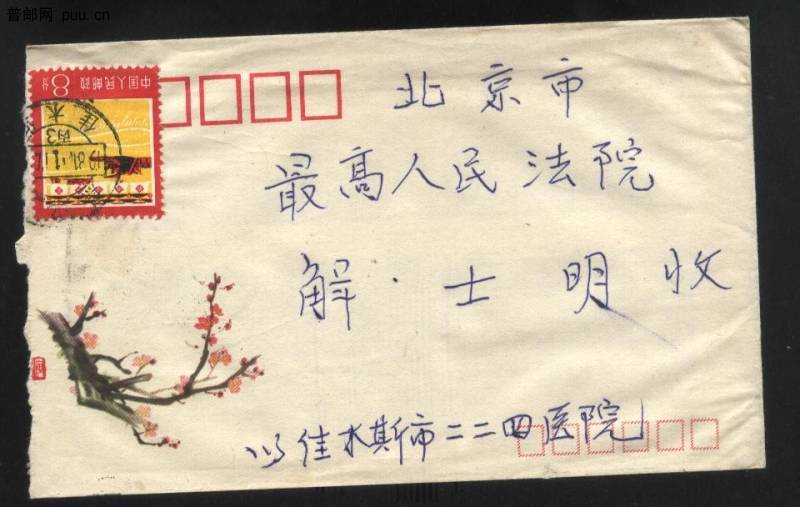 普邮网 puu.cn
中国人民邮政
8分
佳木
丙3
北京市
最高人民法院
解·士明收
佳木斯市二二四医院